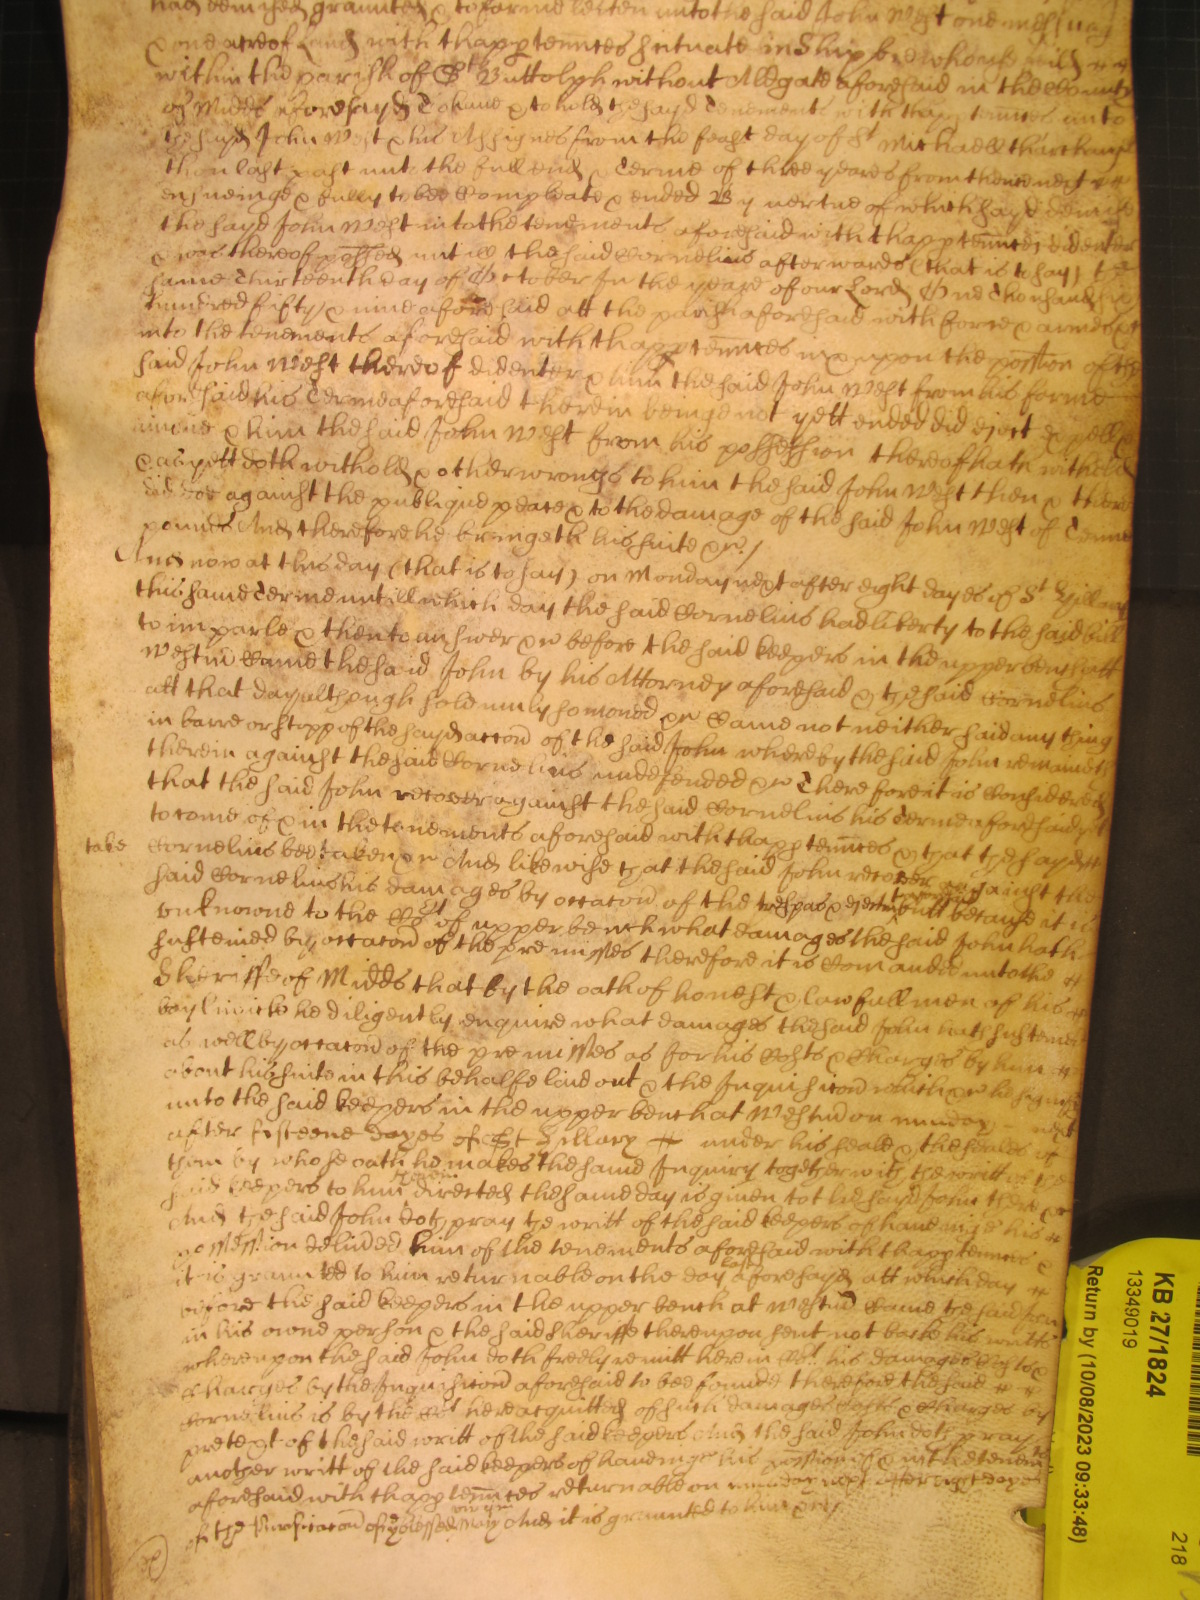 had demised graunted & to farme letten unto the said John West one messuage
& one acre of Land with thapptennces scituate in Shippe
within the parish of St Buttolph without Allgate aforesaid in the County
of Midds aforesayd To have & to hold the sayd tenements with thapptennces unto
the sayd John West & his Assignes from the feast day of St Michaell tharchangell
then last past unto the full end & Terme of three yeares from thence next
ensueinge & fully to bee compleate & ended By vertue of which sayd demise
the sayd John West into the tenements aforesaid with thapptennces did enter
& was thereof possed untill the said Cornelius afterwards (that is to say) the
same Thirteenth day of October In the yeare of our Lord One Thousand six
hundred fifty & nine aforesaid att the parish aforesaid with force & armes &c
into the tenements aforesaid with thapptennces in & upon the possion of the
said John West thereof did enter & him the said John West from his farme
aforesaid his Terme aforesaid therein beinge not yett ended did eject expell &
amove & him the said John West from his possession thereof hath withheld
& as yett doth withold & other wrongs to him the said John West then & there
did doe against the publique peace & to the damage of the said John West of Tenne
pounds And therefore he bringeth his suite &c /
And now at this day (that is to say) on Monday next after eight dayes of St Hillary
this same Terme untill which day the said Cornelius had liberty to the said bill
to imparle & then to answer &c before the said keepers in the upper bench att
Westmr Came the said John by his Attorney aforesaid & the said Cornelius
att that day although solemnly somoned &c Came not neither said any thing
in barre or stopp of the sayd accon of the said John whereby the said John remaineth
therein against the said Cornelius undefended &c Therefore it is Considered
that the said John recover against the said Cornelius his Terme aforesaid yet
to come of & in the tenements aforesaid with thapptennces & that the sayd
take Cornelius bee taken &c And likewise that the said John recover against the
said Cornelius his damages by occacon of the trespas & ejectmt because it is
unknowne to the Cort of upper bench what damages the said John hath
susteined by occacon of the premisses therefore it is Comanded unto the
Sheriffe of Midds that by the oath of honest & lawfull men of his
baylwicke he diligently enquire what damages the said John hath susteined
as well by occacon of the premisses as for his Costs & Charges by him
about his suite in this behalfe laid out & the Inquisicon which &c he signify
unto the said keepers in the upper bench at Westmr on munday next
after fifteene dayes of St Hillary under his seale & the seales of
them by whose oath he makes the same Inquiry together with the writt of the
said keepers to him therein directed the same day is given to the sayd John there &c
And the said John doth pray the writt of the said keepers of haveinge his
possession delivered him of the tenements aforesaid with thapptennces &
it is graunted to him returnable on the day last aforesayd att which day
before the said keepers in the upper bench at Westmr Came the said John
in his owne person & the said Sheriffe thereupon sent not backe his writts
whereupon the said John doth freely remitt here in Cort his damages Costs &
Charges by the Inquisicon aforesaid to bee founde therefore the said
Cornelius is by the Cort here acquitted of such damages Costs & Charges by
pretext of the said writt of the said keepers And the said John doth pray
another writt of the said keepers of haveinge his possion of & in the tenemts
aforesaid with thapptennces returnable on munday next after eight dayes
of the Purificacon of the blessed virgin Mary And it is graunted to him &c /
KB 27/1824
13349019
Return by (10/08/2023 09:33:48)
218